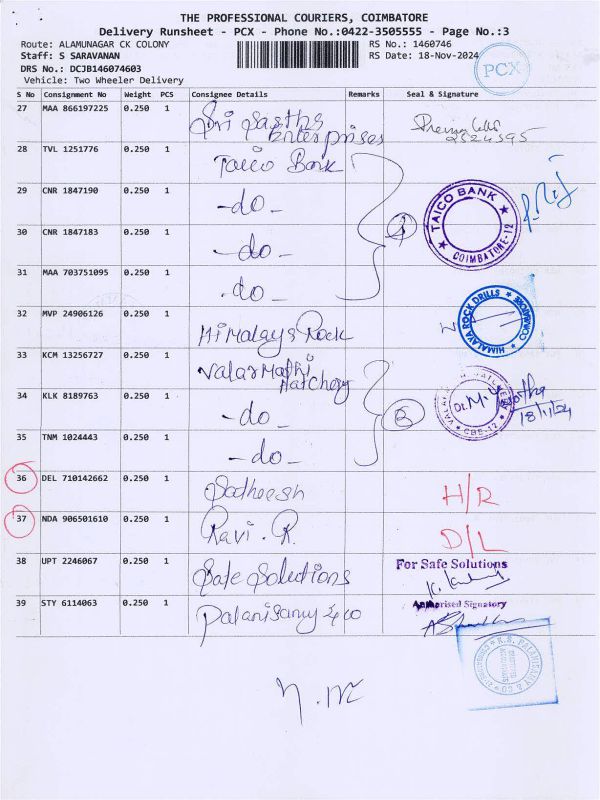 THE PROFESSIONAL COURIERS, COIMBATORE
Delivery Runsheet - PCX - Phone No.:0422-3505555 - Page No.:3
Route: ALAMUNAGAR CK COLONY RS No.: 1460746
Staff: S SARAVANAN RS Date: 18-Nov-2024
DRS No.: DCJB146074603
Vehicle: Two Wheeler Delivery
PCX
S No Consignment No Weight PCS Consignee Details Remarks Seal & Signature
27 MAA 866197225 0.250 1 Sri Sastha
Enterprises
2524595
28 TVL 1251776 0.250 1 Taico Bank
29 CNR 1847190 0.250 1 -do-
TAICO BANK
COIMBATORE-12
30 CNR 1847183 0.250 1 -do-
31 MAA 703751095 0.250 1 -do-
32 MVP 24906126 0.250 1 Himalaya Rock
HIMALAYA ROCK DRILLS
COIMBATORE
33 KCM 13256727 0.250 1 Valarmathi
Hatchery
34 KLK 8189763 0.250 1 -do-
CBE-12
18/11/24
35 TNM 1024443 0.250 1 -do-
36 DEL 710142662 0.250 1 Satheesh H/R
37 NDA 906501610 0.250 1 Ravi . R. D/L
38 UPT 2246067 0.250 1 Safe Solutions
For Safe Solutions
Authorised Signatory
39 STY 6114063 0.250 1 Palanisamy & co
K.S. PALANISAMY & CO